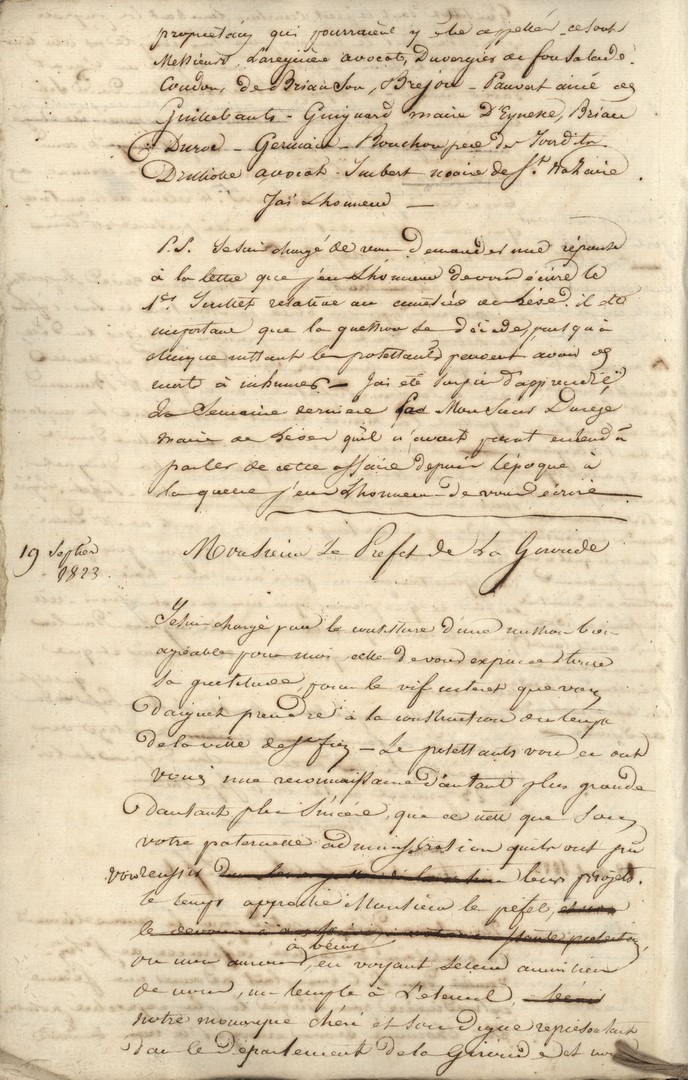 propriétaires qui pourraient y être appellés ce sont
Messieurs Larejnère avocat, Duvergier de
Coudon, de Briançon, Brejon - Pauvert ainé des
Guillebauts - Guignard maire D'Eynesse, Briau
Duroc - Germain - Bouchon père de
avocat Imbert noaire de St. Nazaire
J'ai Lhonneur —
P.S. Je suis chargé de vous demander une réponse
à la lettre que j'eus Lhonneur de vous écrire le
1er. Juillet relative au cimetière de Léves. il est
important que la question se décide puisqu'à
chaque instant les protestants peuvent avoir des
morts à inhumer — J'ai été surpris d'apprendre
La Semaine dernière par Monsieur Durège
maire de Léves qu'il n'avait point entendu
parler de cette affaire depuis l'époque à
laquelle j'eus Lhonneur de vous écrire
19 Septbre 1823.
Monsieur Le Préfet de La Gironde
Je suis chargé par le consistoire d'une mission bien
agréable pour moi, celle de vous exprimer toute
sa gratitude, pour le vif interet que vous
daignés prendre à la construction du temple
de la ville de Ste Foy — Les protestants vous en ont
voué une reconnaissance d'autant plus grande
d'autant plus sincère, que ce n'est que sous
votre paternelle administration qu'ils ont pu
voir réussir leurs projets.
le temps approche Monsieur le préfet,
à bénir
en voyant s'élever au milieu
de nous, un temple à L'eternel,
notre monarque chéri et son digne représentant
dans le Département de la Gironde et nous